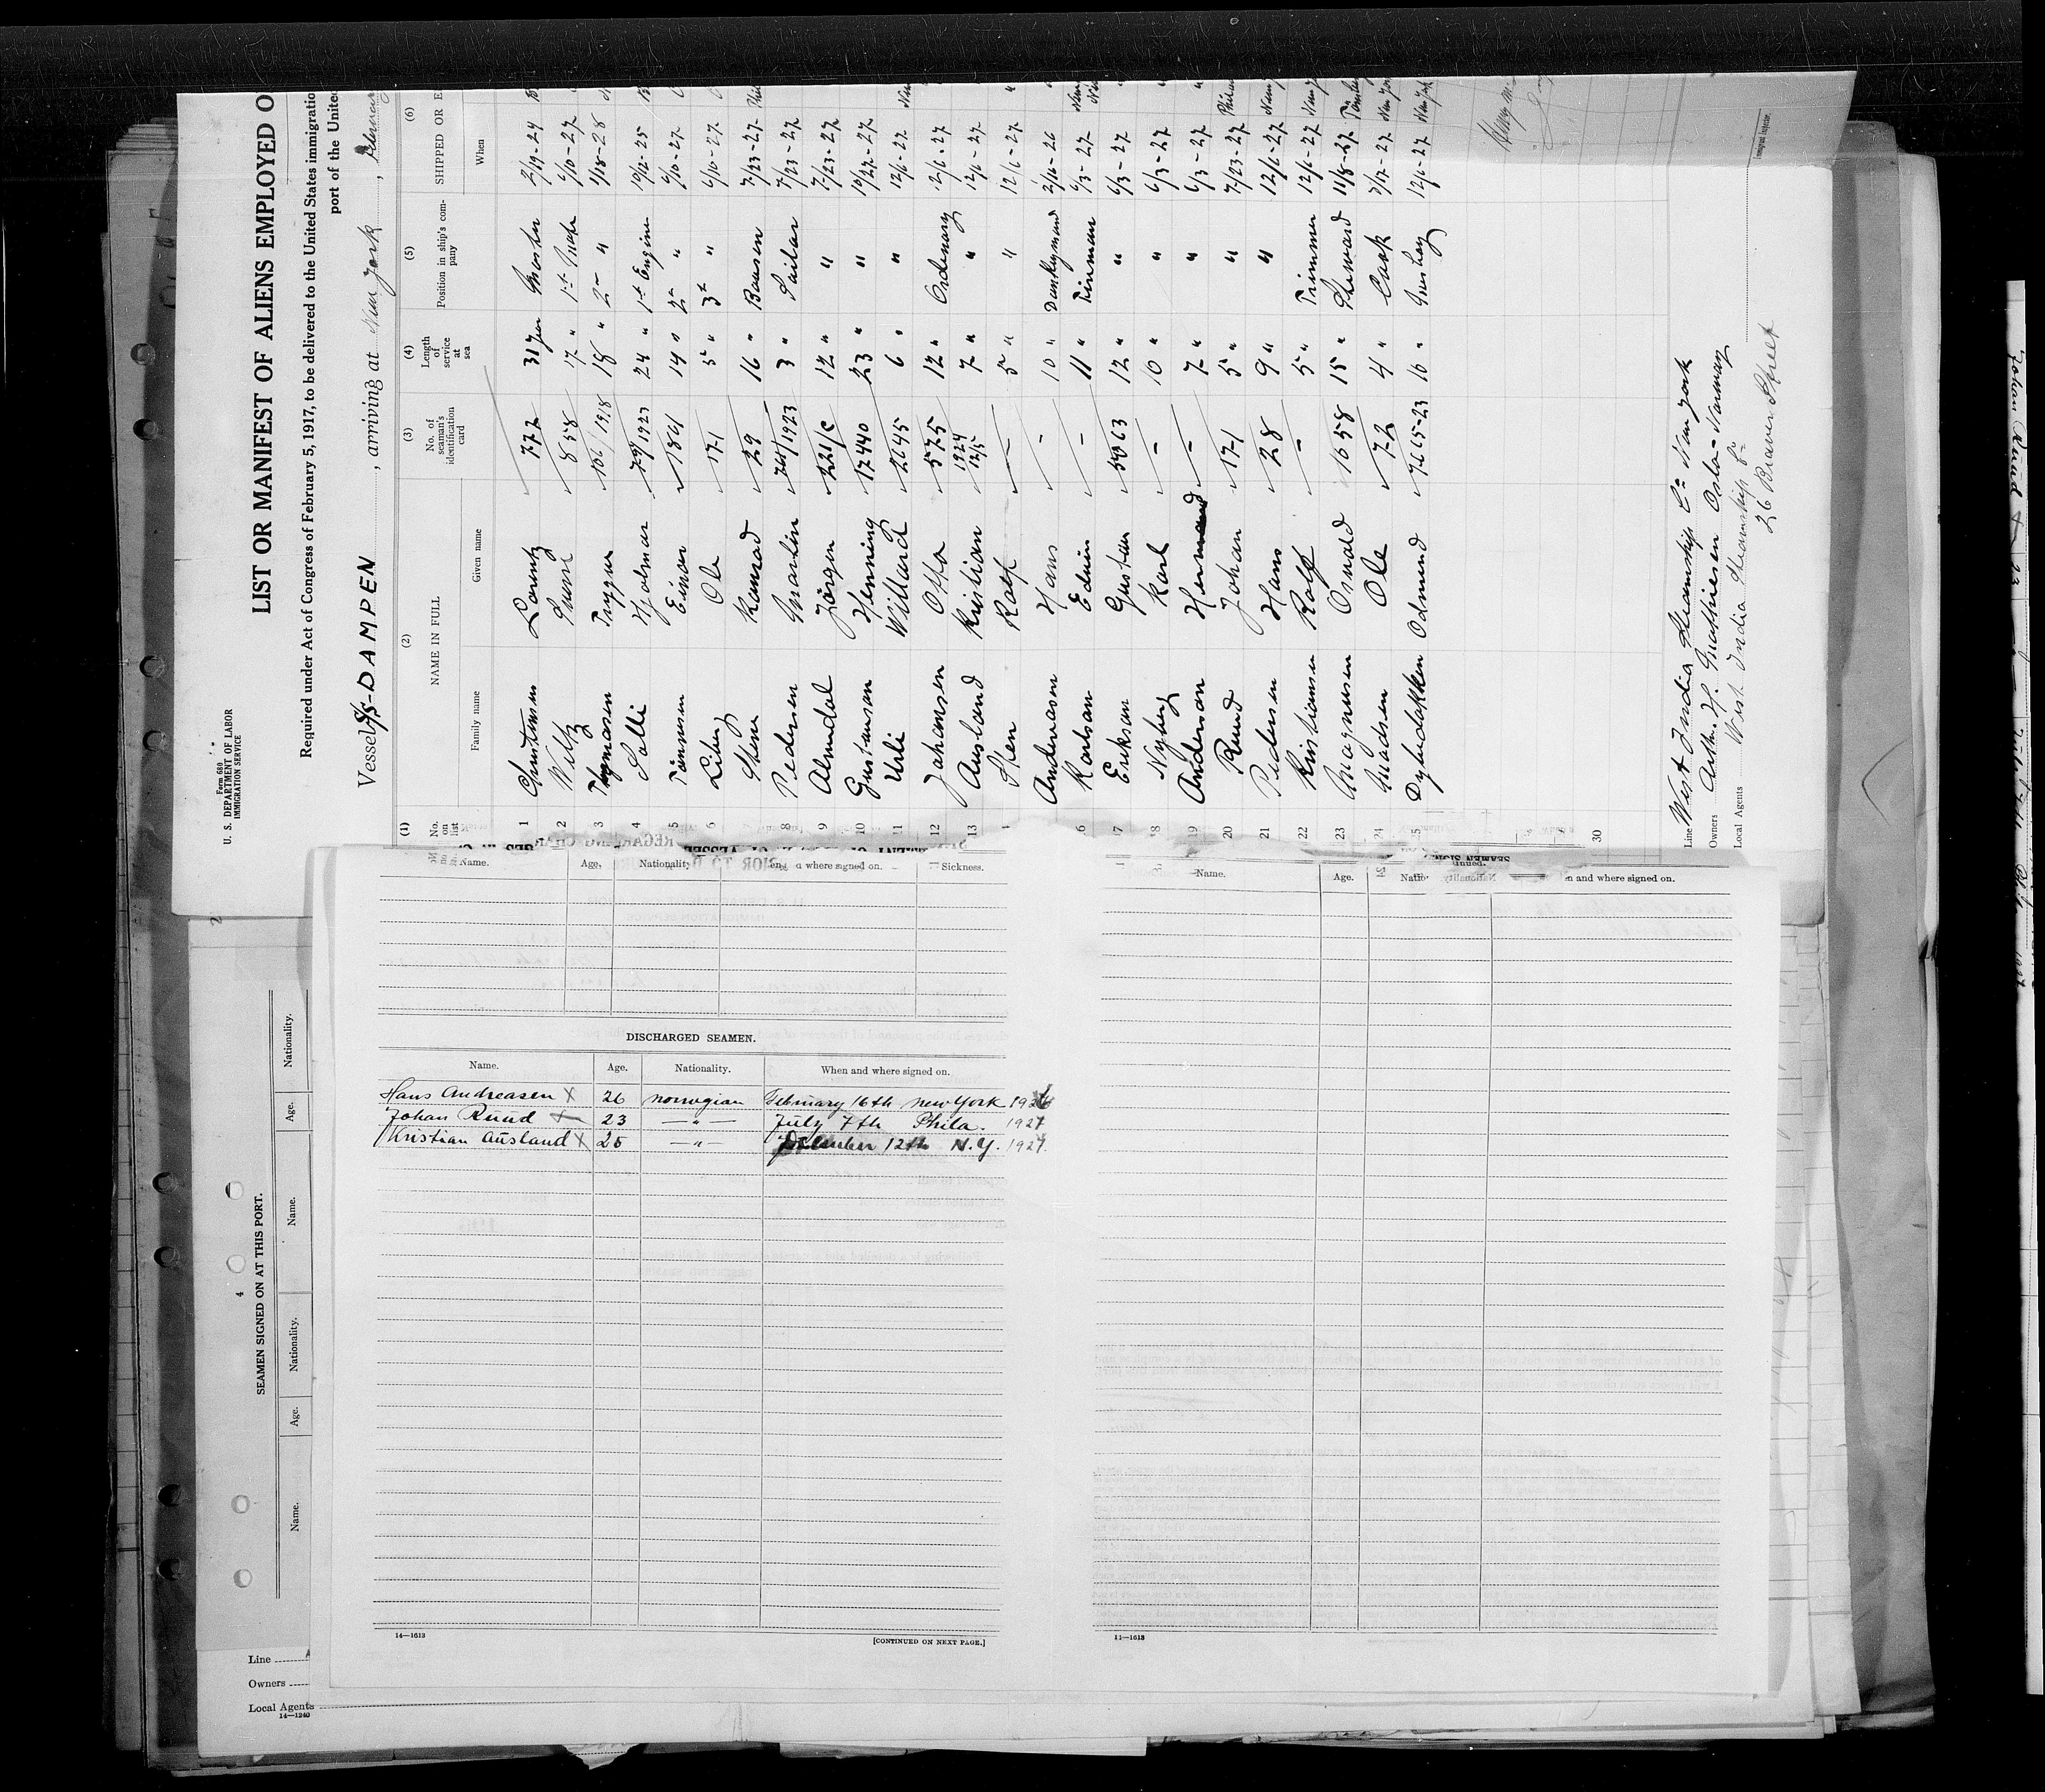 Form 680
U. S. DEPARTMENT OF LABOR
IMMIGRATION SERVICE
LIST OR MANIFEST OF ALIENS EMPLOYED O
Required under Act of Congress of February 5, 1917, to be delivered to the United States immigratio
port of the United
Vessel S/S-DAMPEN, arriving at New York,
(1) (2) (3) (4) (5) (6)
No. on list NAME IN FULL No. of seaman's identification card Length of service at sea Position in ship's company SHIPPED OR E
Family name Given name When
1 Christensen Lauritz 777 31 year Master 2/19-24
2 Wiltz 858 17 " 1st Mate 6/10-27
3 Trygve 106/1918 18 " 2nd " 1/18-28
4 Solli Hjalmar 79/1923 24 " 1st Engine 10/12-25
5 Tönnesen Einar 1841 14 " 2nd " 6/10-27
6 Liberg Ole 171 5 " 3rd " 6/10-27
7 Stene Konrad 29 16 " Boatsen 7/23-27
8 Pedersen Martin 3 " Sailor 7/23-27
9 Almedal Jörgen 221/c 12 " " 7/23-27
10 Gustavsen Henning 17440 23 " " 10/27-27
11 Urli Willard 2645 6 " " 12/6-27
12 Johansen Otto 575 12 " Ordenary 12/6-27
13 Ausland Kristian 1924 1215 7 " " 12/6-27
Sten Rolf — 5 " " 12/6-27
Andreasen Hans — 10 " Dunkeymand 2/16-26
16 Karlsen Edvin — 11 " Fireman 6/3-27
17 Eriksen Gustav 5063 12 " " 6/3-27
18 Nyberg Karl — 10 " " 6/3-27
19 Anderson Herman — 7 " " 6/3-27
20 Ruud Johan 171 5 " " 7/23-27
21 Pedersen Hans 28 9 " " 12/6-27
22 Kristiansen Rolf — 5 " Trimmer 12/6-27
23 Magnusen Osvald 1558 15 " Steward 11/8-27
24 Madsen Ole 72 4 " Cook 3/17-27
25 Dybedokken Odmund 7665-23 16 " Messboy 12/6-27
30
Line West India Steamship Co New York
Owners Arth. H. Mathiesen Oslo-Norway
Local Agents West India Steamship Co
26 Beaver Street
Name. Age. Nationality where signed on. Sickness.
DISCHARGED SEAMEN.
Name. Age. Nationality. When and where signed on.
Hans Andreasen X 26 norwegian February 16th new York 1926
Johan Ruud X 23 —"— July 7th Phila. 1927
Kristian Ausland X 25 —"— December 12th N.Y. 1927
14—1613 [CONTINUED ON NEXT PAGE.]
Name. Age. n and where signed on.
11—1613
4
SEAMEN SIGNED ON AT THIS PORT.
Name. Age. Nationality. Name. Age. Nationality.
Line
Owners
Local Agents
14—1240